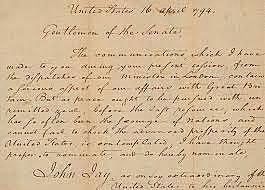 United States 16 April 1794.
Gentlemen of the Senate,
The communications which I have
made to you during your present session, from
the dispatches of our Minister in London, contain
a serious aspect of our affairs with Great Bri
tain. But as peace ought to be pursued with un
remitted zeal, before the last resource, which
has so often been the scourge of Nations, and
cannot fail to check the advanced prosperity of the
United States, is contemplated, I have thought
proper to nominate, and do hereby nominate
John Jay, as envoy extraordinary of the
United States to his